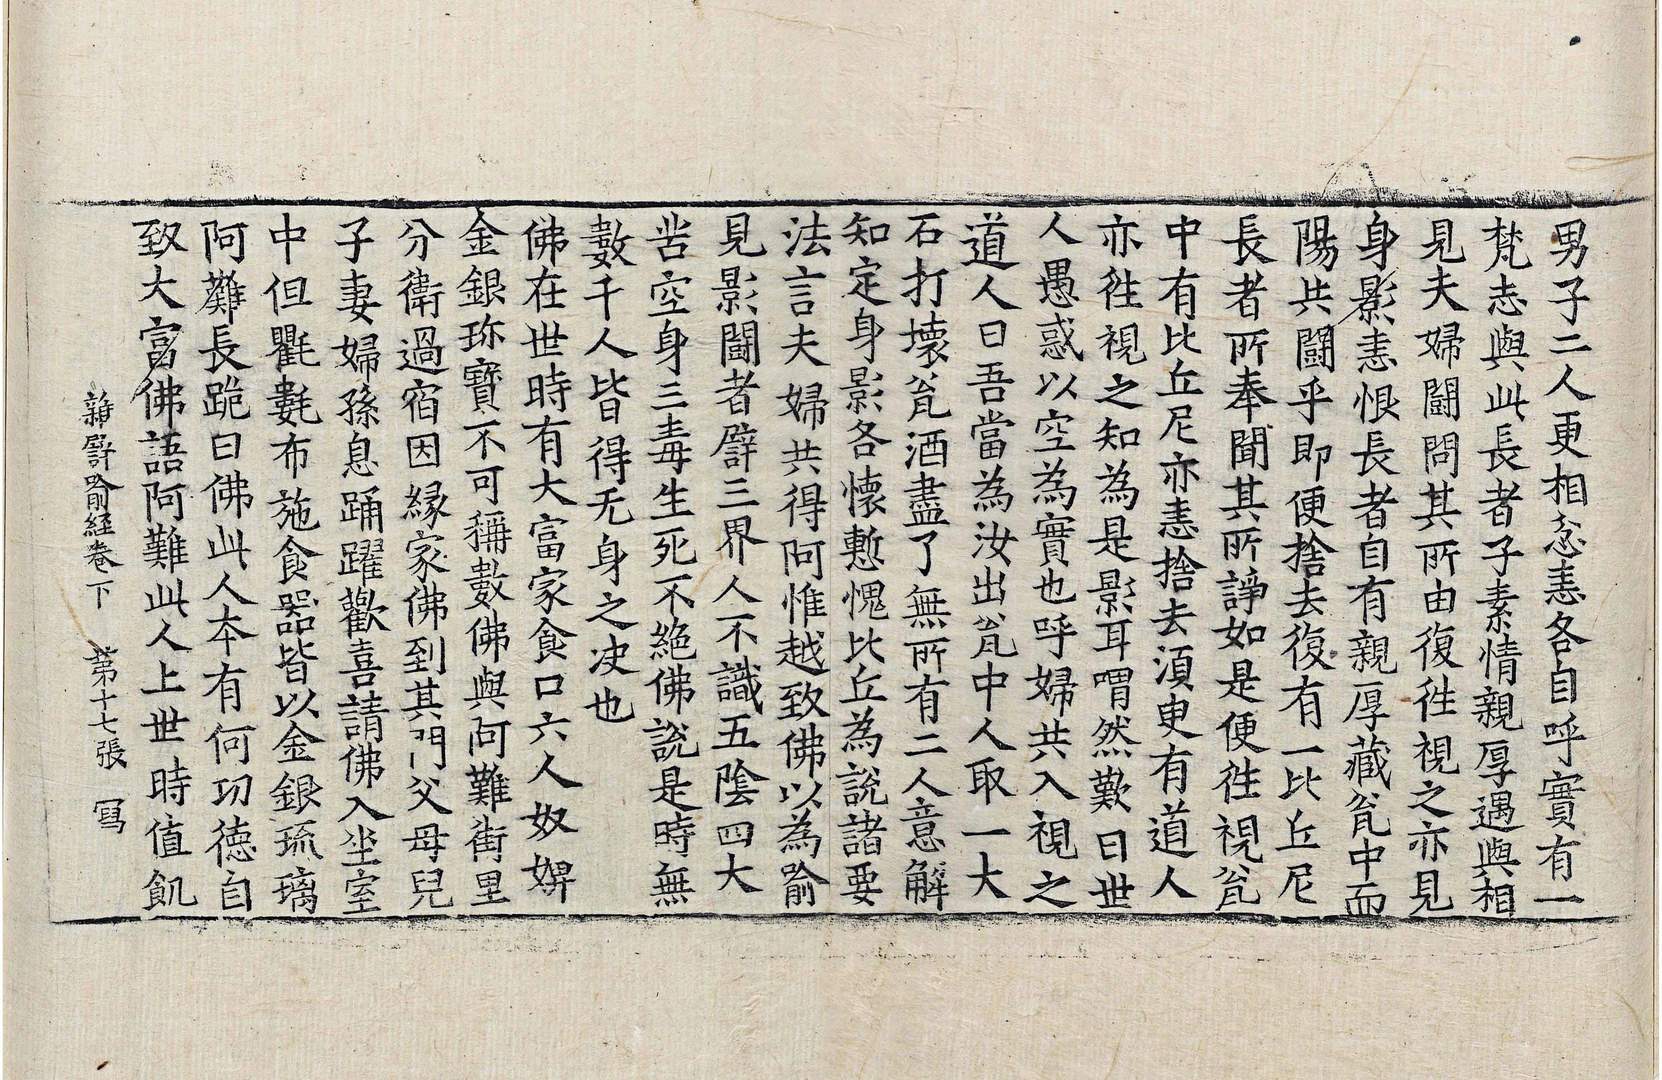 男子二人更相忿恚各自呼實有一
梵志與此長者子素情親厚遇與相
見夫婦鬪問其所由復徃視之亦見
身影恚恨長者自有親厚藏瓮中而
陽共鬪乎即便捨去復有一比丘尼
長者所奉聞其所諍如是便徃視瓮
中有比丘尼亦恚捨去須臾有道人
亦徃視之知為是影耳喟然歎曰世
人愚惑以空為實也呼婦共入視之
道人曰吾當為汝出瓮中人取一大
石打壞瓮酒盡了無所有二人意解
知定身影各懷慙愧比丘為說諸要
法言夫婦共得阿惟越致佛以為喻
見影鬪者譬三界人不識五陰四大
苦空身三毒生死不絕佛說是時無
數千人皆得无身之决也
佛在世時有大富家食口六人奴婢
金銀珎寶不可稱數佛與阿難街里
分衛過宿因緣家佛到其門父母兒
子妻婦孫息踊躍歡喜請佛入坐室
中但氍㲣布施食器皆以金銀琉璃
阿難長跪曰佛此人本有何功德自
致大富佛語阿難此人上世時值飢
雜譬喻經卷下　第十七張　寫